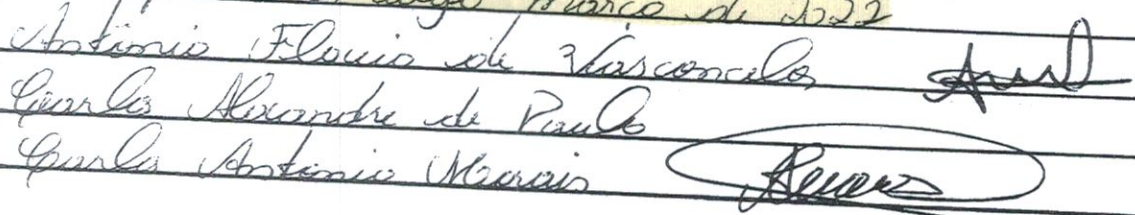 Março de 2022
Antônio Flavio de Vasconcelos
Carlos Alexandre de Paulo
Carlos Antonio Morais